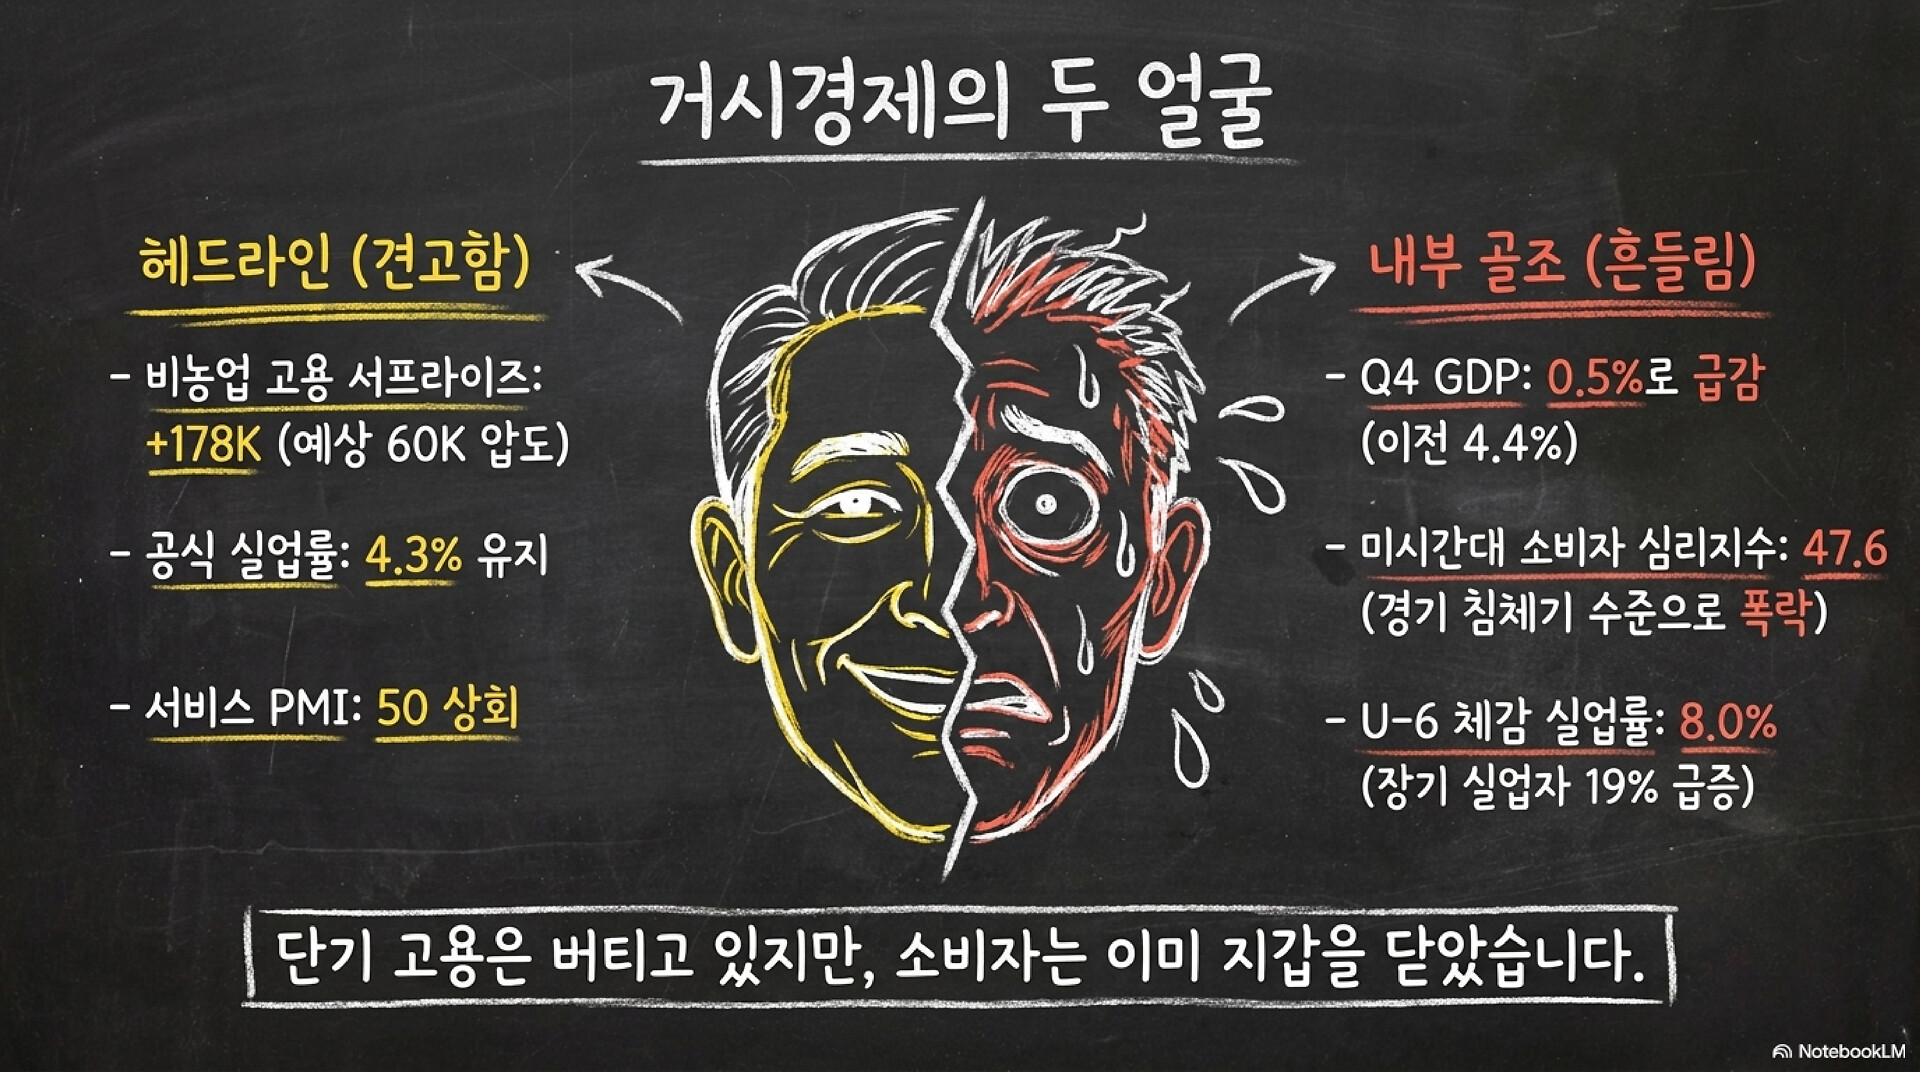 거시경제의 두 얼굴
헤드라인 (견고함)
- 비농업 고용 서프라이즈:
+178K (예상 60K 압도)
- 공식 실업률: 4.3% 유지
- 서비스 PMI: 50 상회
내부 골조 (흔들림)
- Q4 GDP: 0.5%로 급감
(이전 4.4%)
- 미시간대 소비자 심리지수: 47.6
(경기 침체기 수준으로 폭락)
- U-6 체감 실업률: 8.0%
(장기 실업자 19% 급증)
단기 고용은 버티고 있지만, 소비자는 이미 지갑을 닫았습니다.
NotebookLM